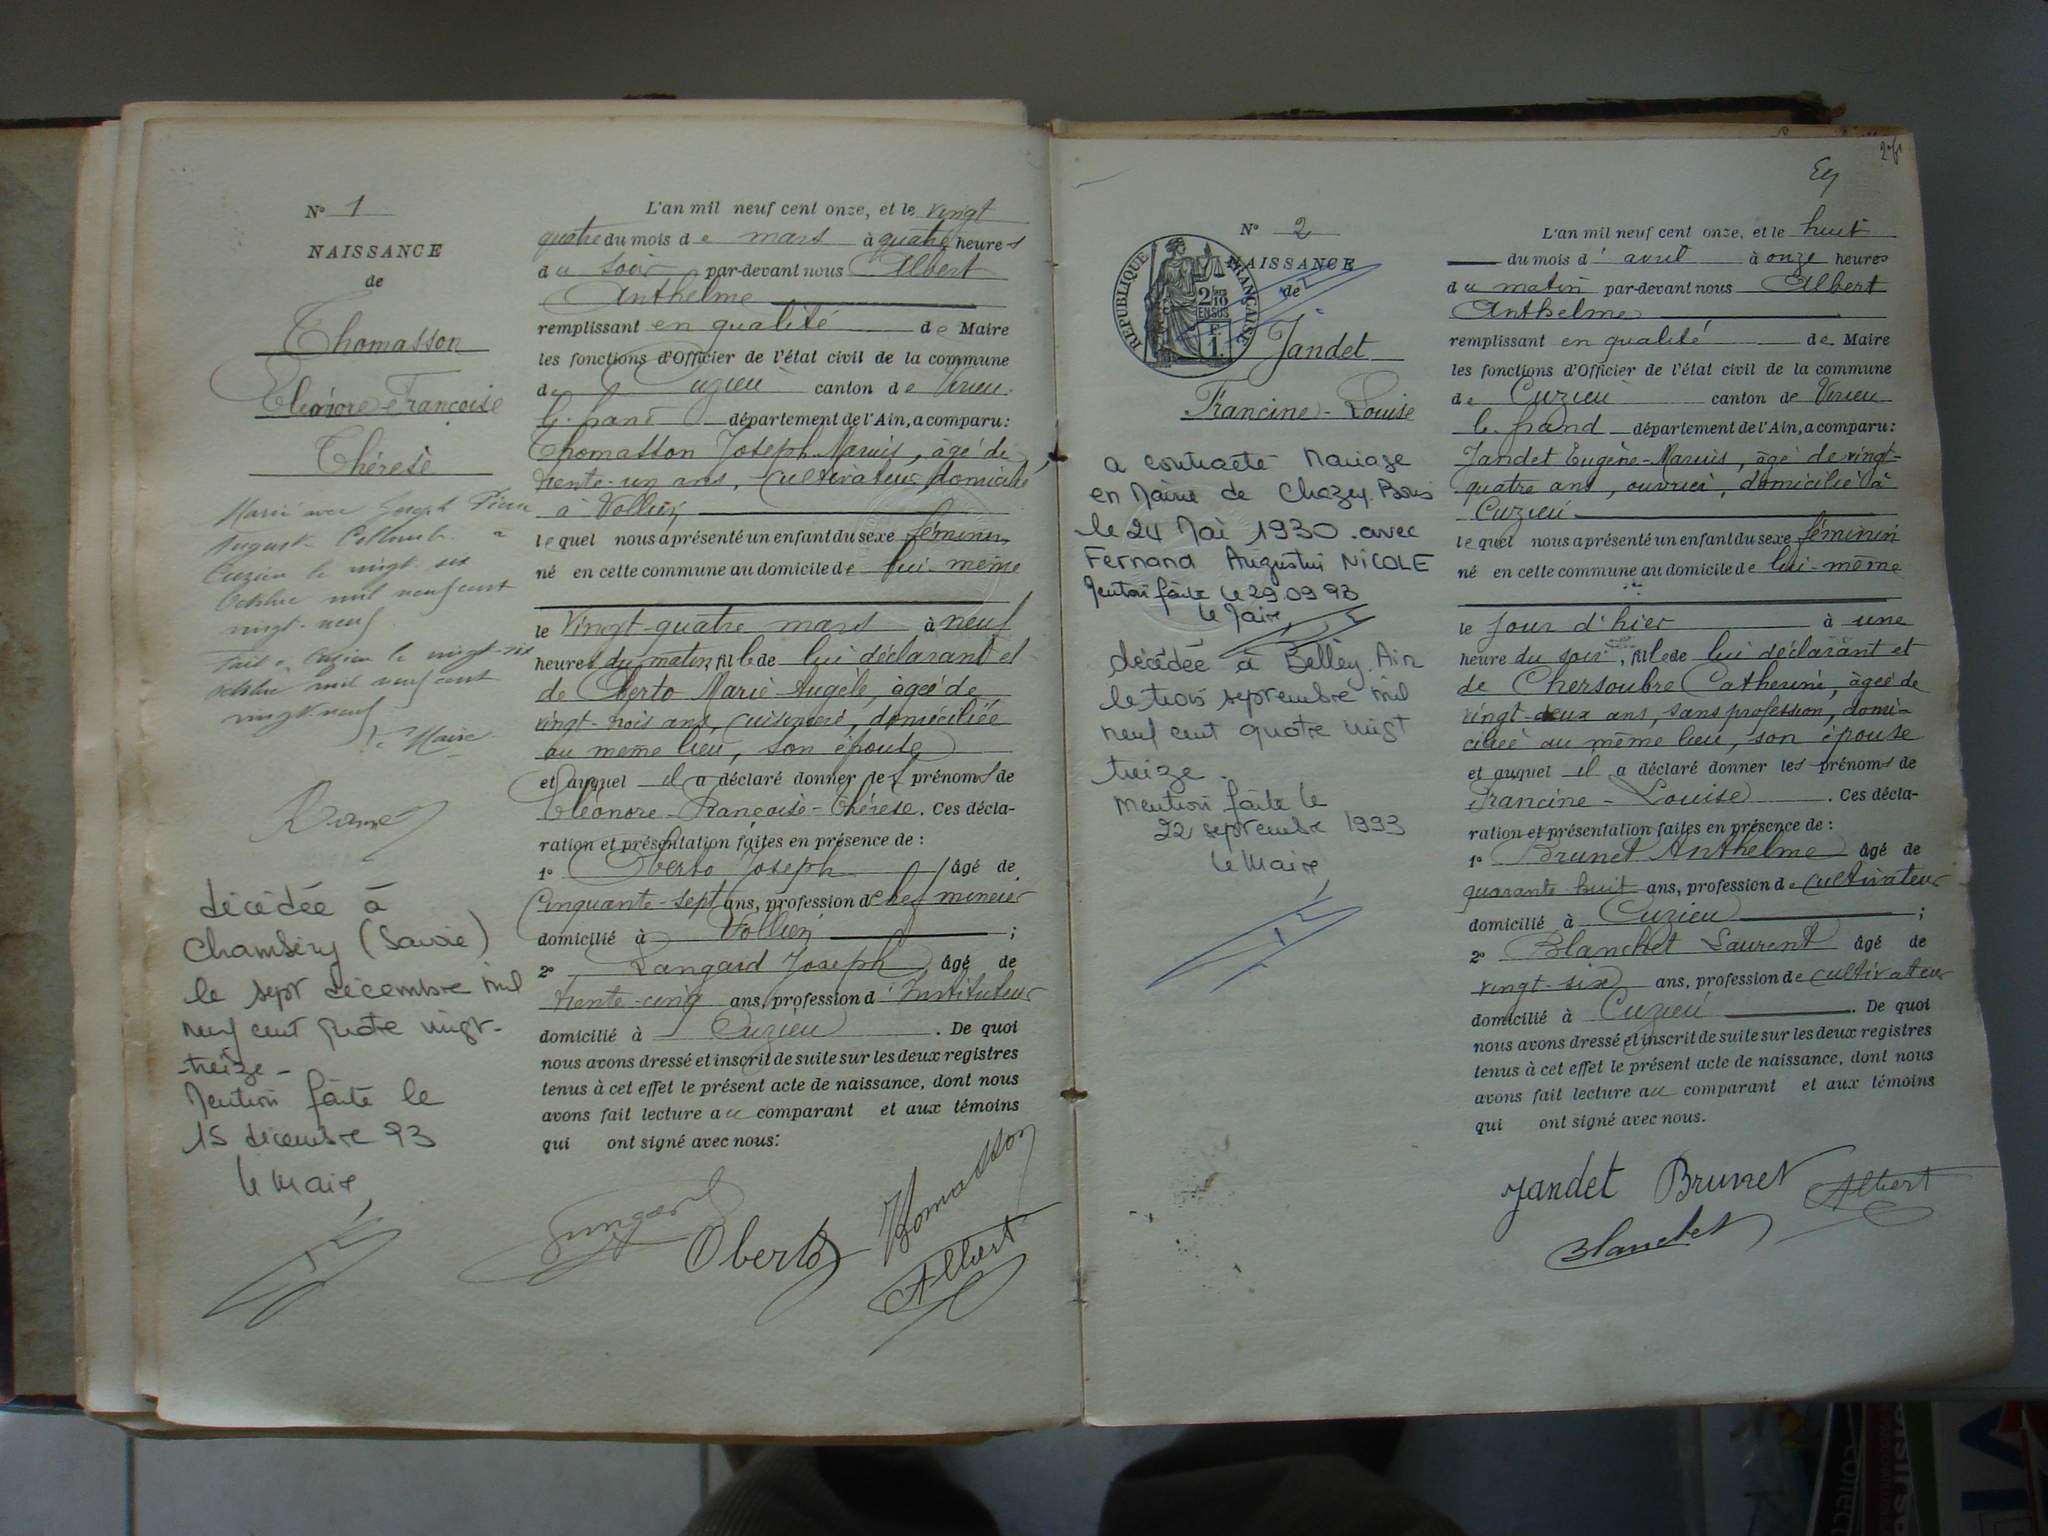 N° 1
NAISSANCE
de
Thomasson
Eléonore Françoise
Thérèse
Marié avec Joseph
August à
Cuzieu le vingt six
Octobre mil neuf cent
vingt-neuf
Fait à Cuzieu le vingt-six
octobre mil neuf cent
vingt neuf
Le Maire
décédée à
Chambéry (Savoie)
le sept décembre mil
neuf cent quatre vingt-
treize -
Mention faite le
15 décembre 93
le Maire,
L'an mil neuf cent onze, et le vingt
quatre du mois de mars à quatre heures
du soir par-devant nous Albert
Anthelme
remplissant en qualité de Maire
les fonctions d'Officier de l'état civil de la commune
de Cuzieu canton de Virieu
le-grand département de l'Ain, a comparu:
Thomasson Joseph Marius, âgé de
trente-un ans, cultivateur, domicilié
à Vollien
lequel nous a présenté un enfant du sexe féminin
né en cette commune au domicile de lui-même
le Vingt-quatre mars à neuf
heures du matin, fille de lui déclarant et
de Oberto Marie Angèle, âgée de
vingt-trois ans, cuisinière, domiciliée
au même lieu, son épouse
et auquel il a déclaré donner les prénoms de
Eléonore-Françoise-Thérèse. Ces décla-
ration et présentation faites en présence de :
1° Oberto Joseph âgé de
Cinquante-sept ans, profession de chef mineur
domicilié à Vollien ;
2° Langard Joseph âgé de
trente-cinq ans, profession d'Instituteur
domicilié à Cuzieu . De quoi
nous avons dressé et inscrit de suite sur les deux registres
tenus à cet effet le présent acte de naissance, dont nous
avons fait lecture au comparant et aux témoins
qui ont signé avec nous:
Oberto Thomasson
Albert
N° 2
NAISSANCE
de
RÉPUBLIQUE FRANÇAISE
2/10
EN SUS
F.
1.
Jandet
Francine-Louise
a contracté Mariage
en Mairie de Chazey-Bons
le 24 Mai 1930 avec
Fernand Augustin NICOLE
Mention faite le 29 09 93
le Maire,
décédée à Belley. Ain
le trois septembre mil
neuf cent quatre vingt
treize.
Mention faite le
22 septembre 1993
le Maire,
L'an mil neuf cent onze, et le huit
du mois d'avril à onze heures
du matin par-devant nous Albert
Anthelme
remplissant en qualité de Maire
les fonctions d'Officier de l'état civil de la commune
de Cuzieu canton de Virieu
le-grand département de l'Ain, a comparu:
Jandet Eugène-Marius, âgé de vingt-
quatre ans, ouvrier, domicilié à
Cuzieu
lequel nous a présenté un enfant du sexe féminin
né en cette commune au domicile de lui-même
le jour d'hier à une
heure du soir, fille de lui déclarant et
de Chersoubre Catherine, âgée de
vingt-deux ans, sans profession, domi-
ciliée au même lieu, son épouse
et auquel il a déclaré donner les prénoms de
Francine-Louise . Ces décla-
ration et présentation faites en présence de :
1° Brunet Anthelme âgé de
quarante-huit ans, profession de cultivateur
domicilié à Cuzieu ;
2° Blanchet Laurent âgé de
vingt-six ans, profession de cultivateur
domicilié à Cuzieu . De quoi
nous avons dressé et inscrit de suite sur les deux registres
tenus à cet effet le présent acte de naissance, dont nous
avons fait lecture au comparant et aux témoins
qui ont signé avec nous.
Jandet Brunet Albert
Blanchet